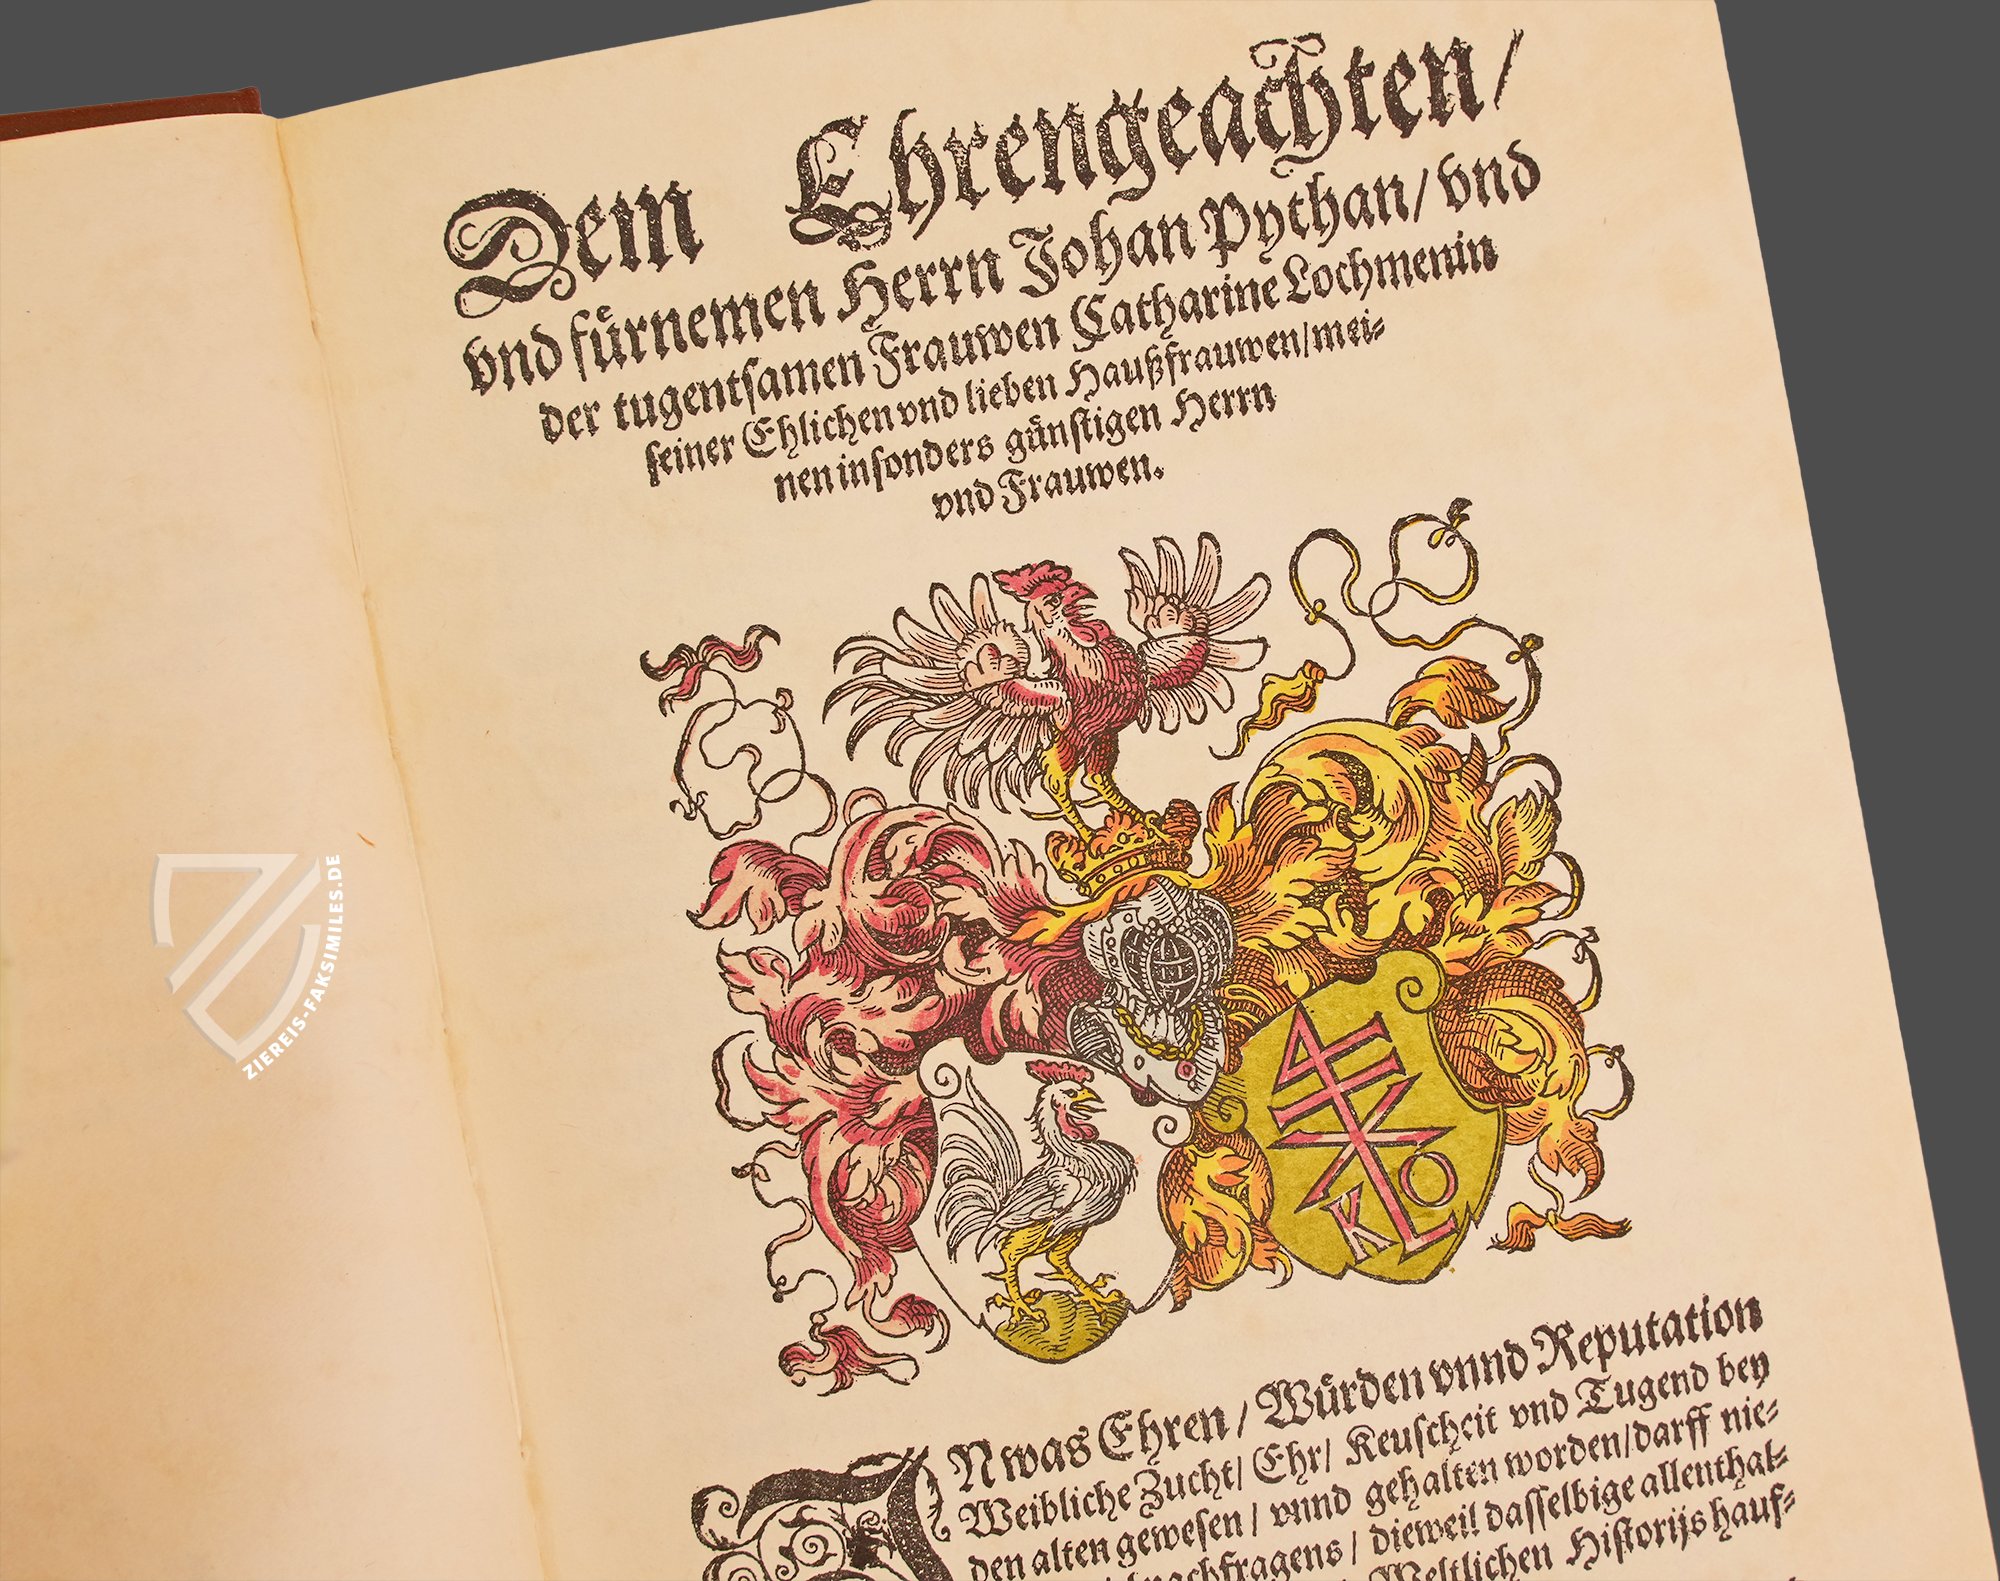 Dem Ehrengeachten/
vnd fürnemen Herrn Johan Pythan/ vnd
der tugentſamen Frauwen Catharine Lochmenin
ſeiner Ehlichen vnd lieben Haußfrauwen/mei-
nen inſonders günſtigen Herrn
vnd Frauwen.
K L O
IN was Ehren/ Würden vnnd Reputation
Weibliche Zucht/ Ehr/ Keuſcheit vnd Tugend bey
den alten geweſen/ vnnd gehalten worden/darff nie-
nachfragens/ dieweil daſſelbige allenthal-
Weltlichen Hiſtorijs hauf-
ZIEREIS-FAKSIMILES.DE